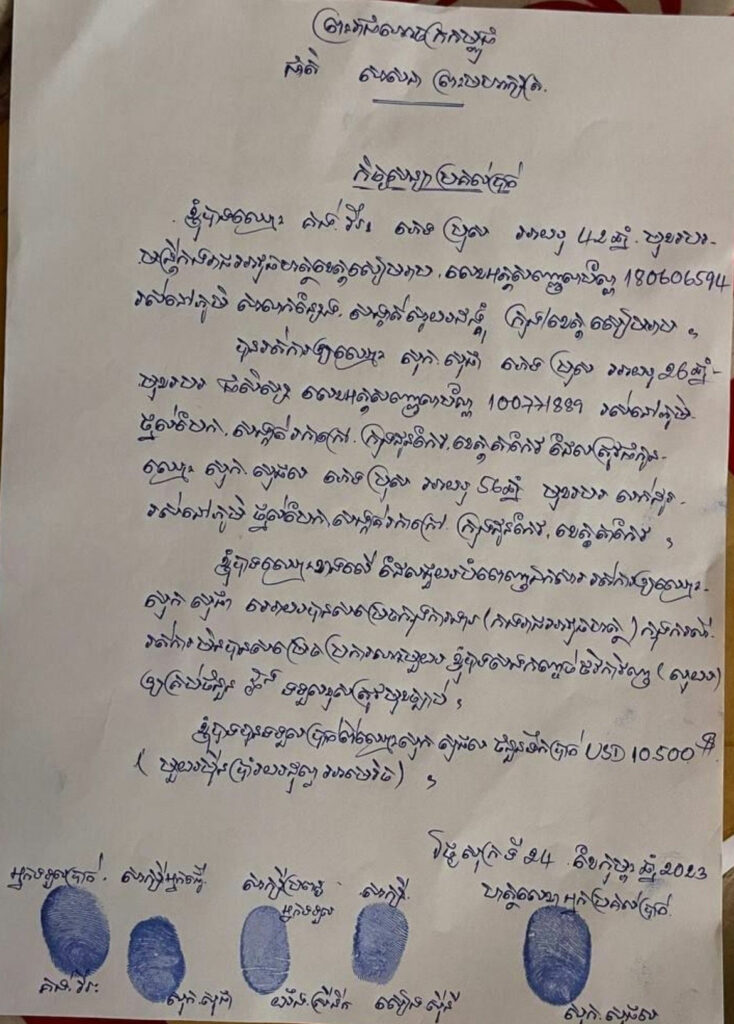 ព្រះរាជាណាចក្រកម្ពុជា
ជាតិ សាសនា ព្រះមហាក្សត្រ
កិច្ចសន្យាប្រគល់ប្រាក់
ខ្ញុំបាទឈ្មោះ គង់ វីរៈ ភេទ ប្រុស អាយុ 42 ឆ្នាំ មុខរបរ
មន្ត្រីកងរាជអាវុធហត្ថខេត្តសៀមរាប, លេខអត្តសញ្ញាណប័ណ្ណ 180606594
រស់នៅភូមិ សាលាកន្សែង, សង្កាត់ស្វាយដង្គំ ក្រុង/ខេត្ត សៀមរាប ។
បានរត់ការឲ្យឈ្មោះ សុក សុជា ភេទ ប្រុស អាយុ 26 ឆ្នាំ
មុខរបរ ជាសិស្ស លេខអត្តសញ្ញាណប័ណ្ណ 100771889 រស់នៅភូមិ
ថ្នល់បែក, សង្កាត់រកាក្រៅ, ក្រុងដូនកែវ, ខេត្តតាកែវ ដែលត្រូវជាកូន
ឈ្មោះ សុក សុផល ភេទ ប្រុស អាយុ 56 ឆ្នាំ មុខរបរ លក់ដូរ
រស់នៅភូមិ ថ្នល់បែក, សង្កាត់រកាក្រៅ, ក្រុងដូនកែវ, ខេត្តតាកែវ ។
ខ្ញុំបាទឈ្មោះខាងលើ ដែលជួយបំពេញឯកសារ រត់ការឲ្យឈ្មោះ
សុក សុជា អោយបានសម្រេចក្នុងការងារ (កងរាជអាវុធហត្ថ) ក្នុងករណី
រត់ការមិនបានសម្រេចប្រការណាមួយ ខ្ញុំបាទសងកញ្ចប់ថវិកាវិញ (លុយ)
ឲ្យគ្រប់ចំនួន និង ទទួលខុសត្រូវមុខច្បាប់ ។
ខ្ញុំបាទបានទទួលប្រាក់ពីឈ្មោះ សុក សុផល ចំនួនទឹកប្រាក់ USD 10500$
( មួយម៉ឺនប្រាំរយដុល្លារអាមេរិច) ។
ថ្ងៃសុក្រ ទី 24 ខែកុម្ភៈ ឆ្នាំ 2023
អ្នកទទួលប្រាក់ សាក្សីអ្នក សាក្សី សាក្សី ស្នាមមេដៃអ្នកប្រគល់ប្រាក់
អ្នកទទួល
គង់ វីរៈ សុក សុជា សុក សុផល